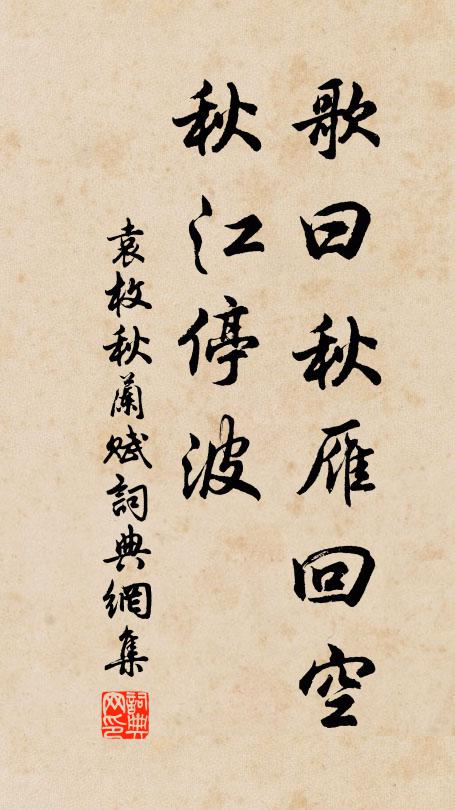 歌曰秋雁回空
秋江停波
袁枚秋蘭賦詞典網集
詞典网印